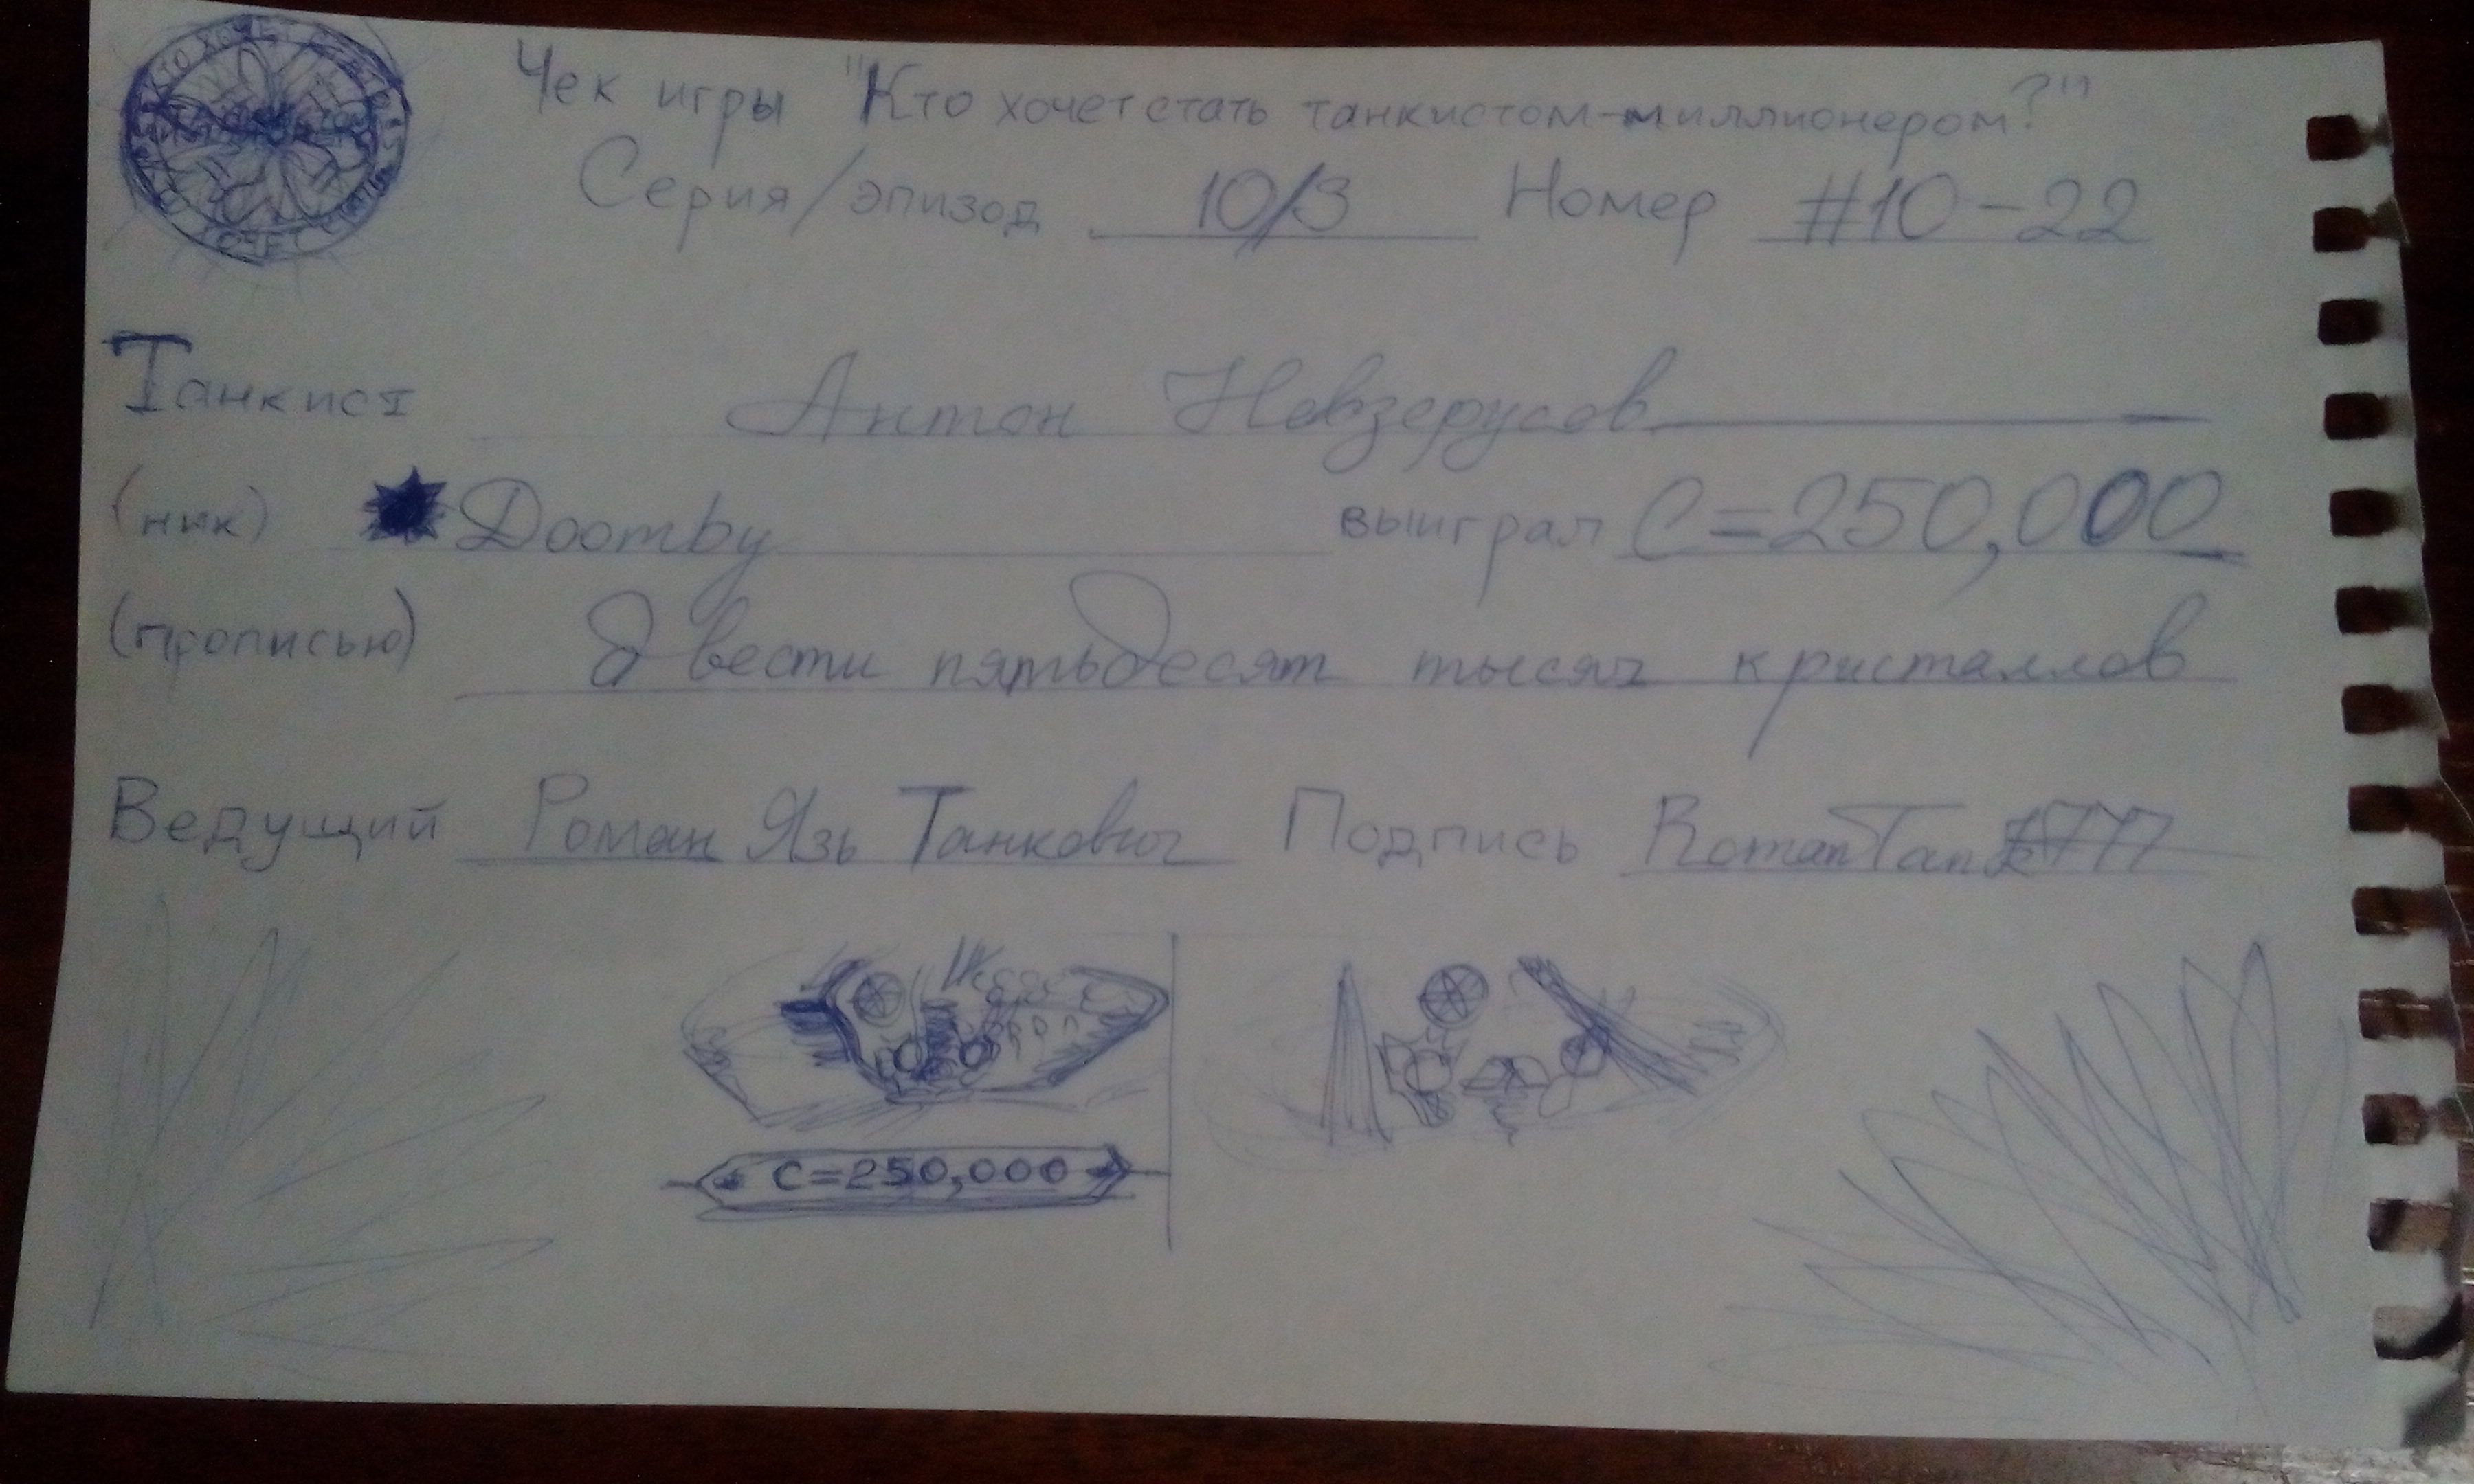 Чек игры "Кто хочет стать танкистом-миллионером?"
Серия/эпизод 10/3 Номер #10-22
Танкист Антон Невзерусов
(ник) Doomby выиграл С=250,000
(прописью) Двести пятьдесят тысяч кристаллов
Ведущий Роман Язь Танкович Подпись RomanTank777
С=250,000